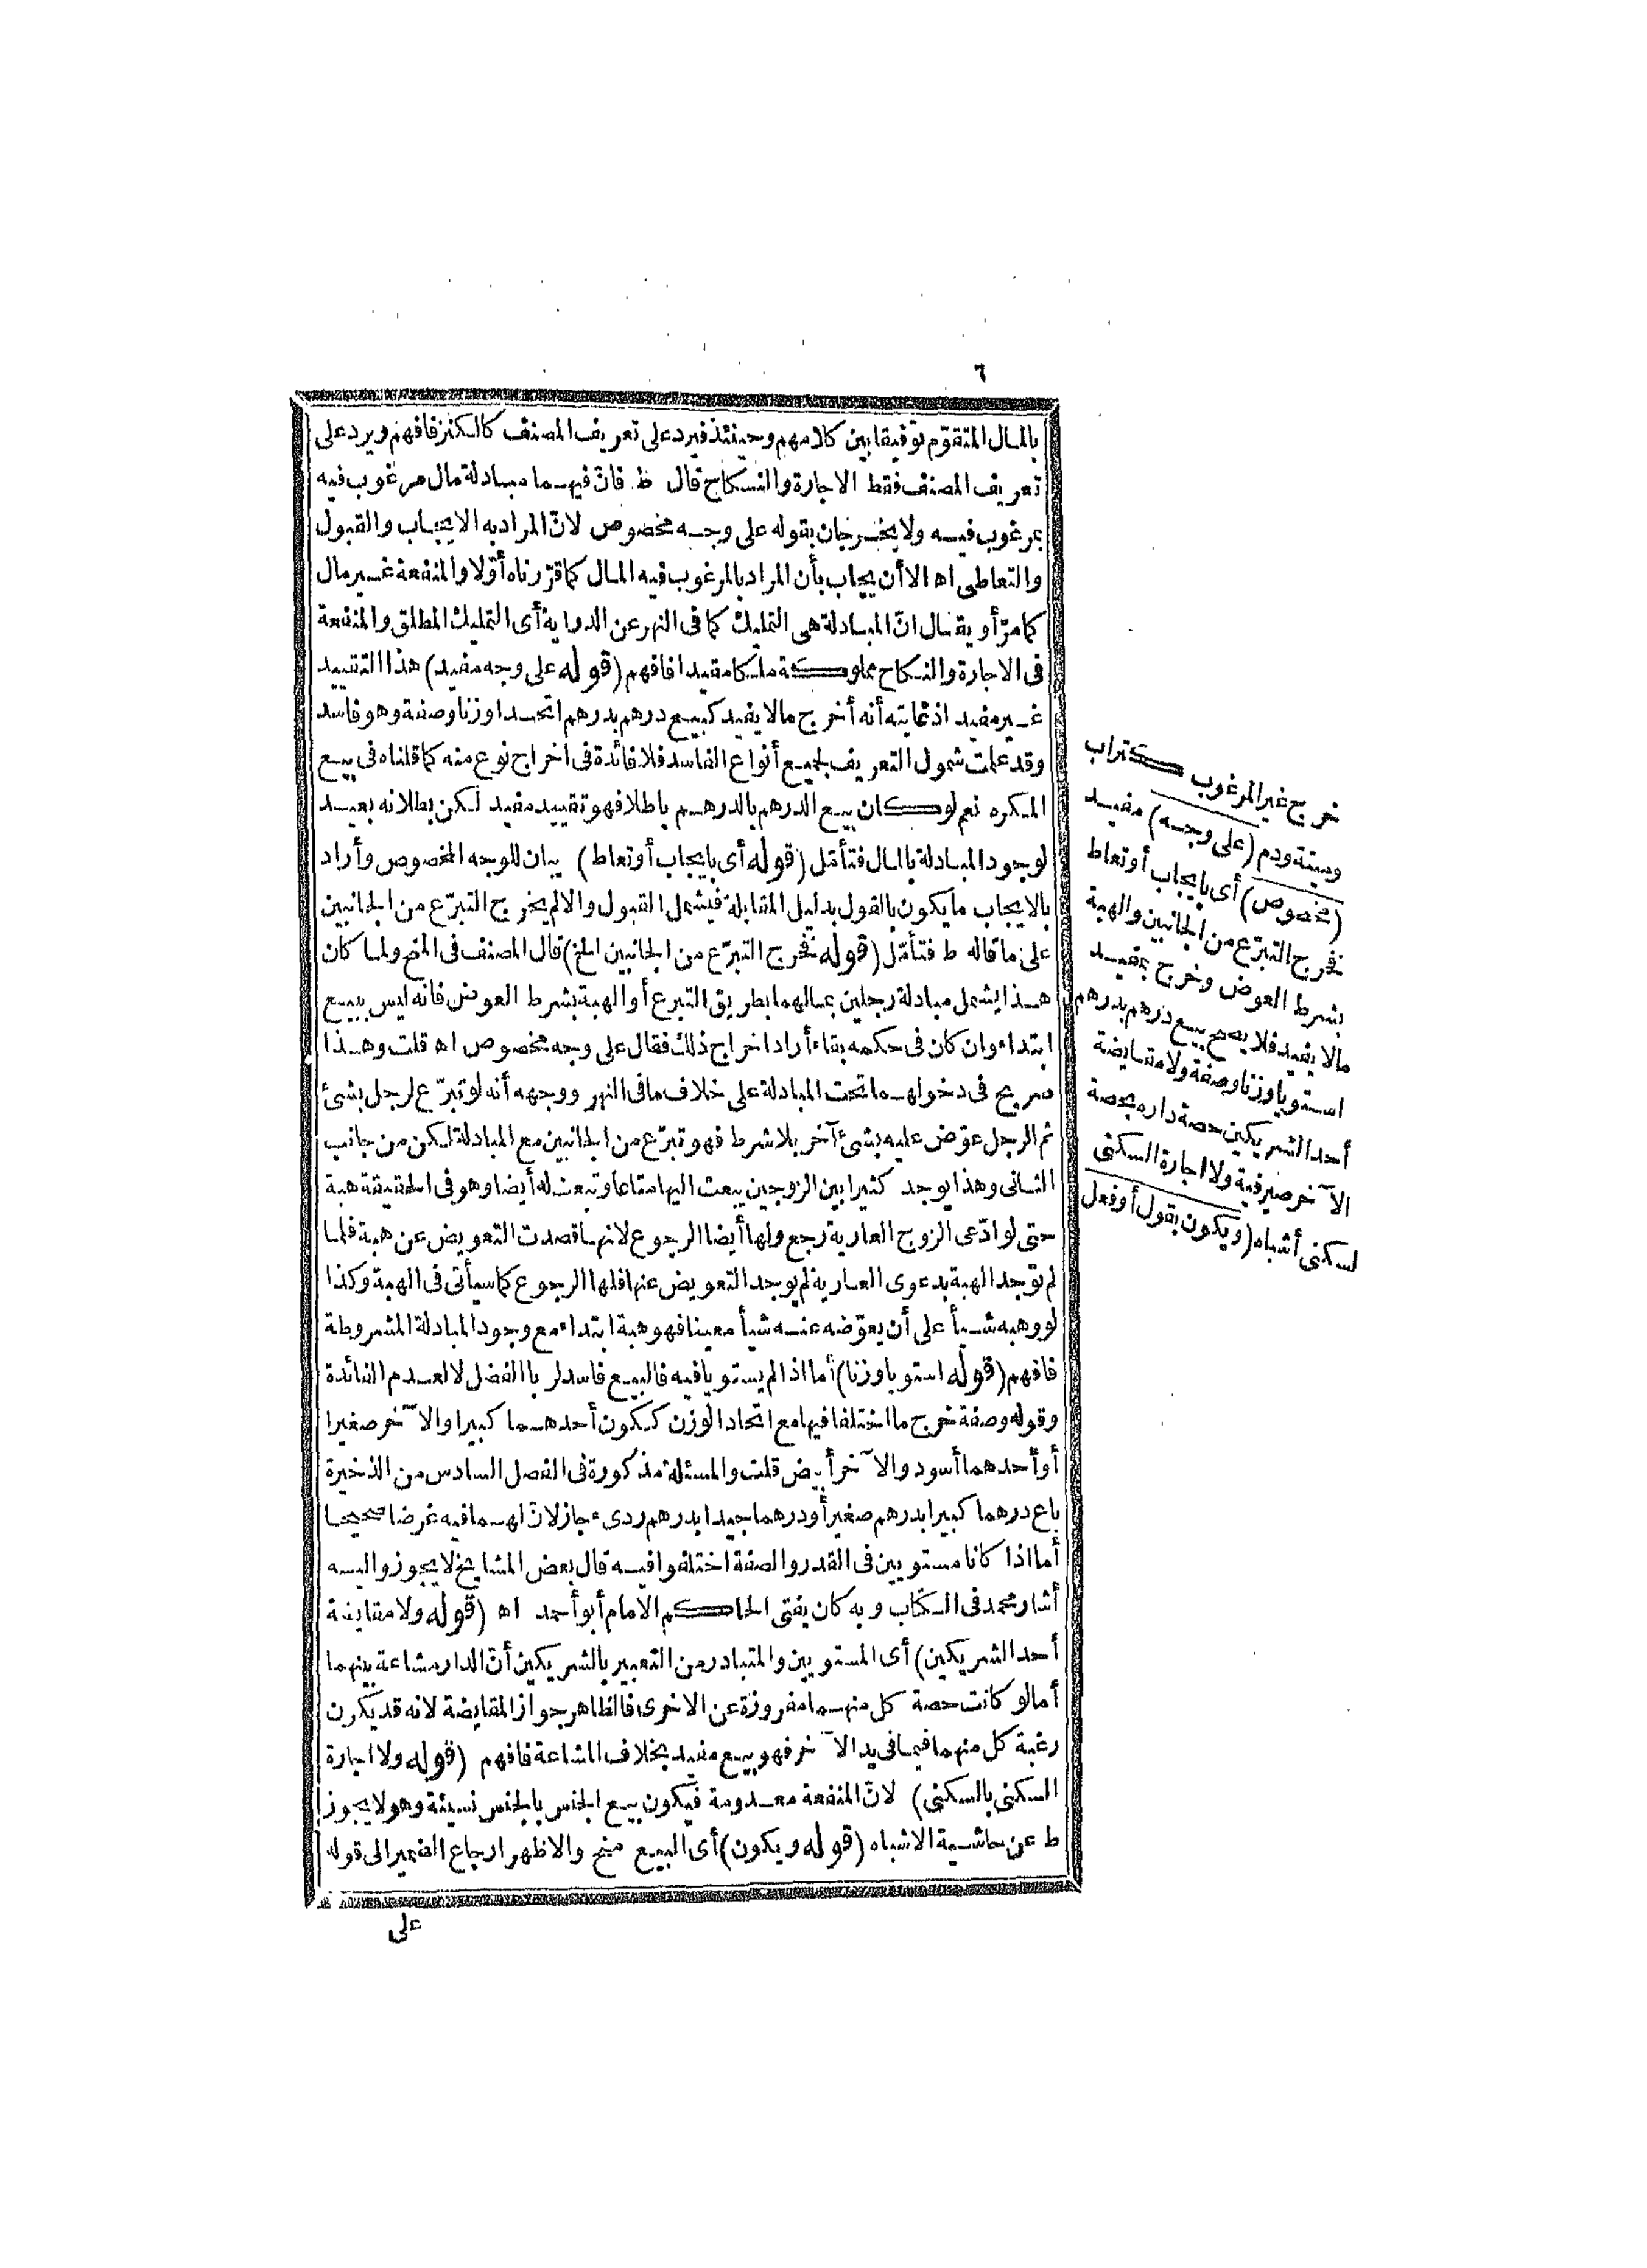 ٦
بالمال المتقوّم توفيقا بين كلامهم وحينئذ فيرد على تعريف المصنف كالكنز فافهم ويرد على
تعريف المصنف فقط الاجارة والنكاح قال ط فانّ فيهما مبادلة مال مرغوب فيه
بمرغوب فيه ولا يخرجان بقوله على وجه مخصوص لانّ المراد به الايجاب والقبول
والتعاطى اه الا أن يجاب بأن المراد بالمرغوب فيه المال كما قرّرناه أوّلا والمنفعة غير مال
كما مرّ أو يقال انّ المبادلة هى التمليك كما فى النهر عن الدراية أى التمليك المطلق والمنفعة
فى الاجارة والنكاح مملوكة ملكا مقيدا فافهم (قوله على وجه مفيد) هذا التقييد
غير مفيد اذ غايته أنه أخرج ما لا يفيد كبيع درهم بدرهم اتحدا وزنا وصفة وهو فاسد
وقد علمت شمول التعريف لجميع أنواع الفاسد فلا فائدة فى اخراج نوع منه كما قلناه فى بيع
المكره نعم لو كان بيع الدرهم بالدرهم باطلا فهو تقييد مفيد لكن بطلانه بعيد
لوجود المبادلة بالمال فتأمّل (قوله أى بايجاب أو تعاط) بيان للوجه المخصوص وأراد
بالايجاب ما يكون بالقول بدليل المقابلة فيشمل القبول والا لم يخرج التبرّع من الجانبين
على ما قاله ط فتأمّل (قوله فخرج التبرّع من الجانبين الخ) قال المصنف فى المنح ولما كان
هذا يشمل مبادلة رجلين بمالهما بطريق التبرع أو الهبة بشرط العوض فانه ليس ببيع
ابتداء وان كان فى حكمه بقاء أراد اخراج ذلك فقال على وجه مخصوص اه قلت وهذا
صريح فى دخولهما تحت المبادلة على خلاف ما فى النهر ووجهه أنه لو تبرّع لرجل بشئ
ثم الرجل عوّض عليه بشئ آخر بلا شرط فهو تبرّع من الجانبين مع المبادلة لكن من جانب
الثانى وهذا يوجد كثيرا بين الزوجين يبعث اليها متاعا وتبعث له أيضا وهو فى الحقيقة هبة
حتى لو ادّعى الزوج العارية رجع ولها أيضا الرجوع لانها قصدت التعويض عن هبة فلما
لم توجد الهبة بدعوى العارية لم يوجد التعويض عنها فلها الرجوع كما سيأتى فى الهبة وكذا
لو وهبه شيأ على أن يعوّضه عنه شيأ معينا فهو هبة ابتداء مع وجود المبادلة المشروطة
فافهم (قوله استويا وزنا) أما اذا لم يستويا فيه فالبيع فاسد لربا الفضل لا لعدم الفائدة
وقوله وصفة خرج ما اختلفا فيها مع اتحاد الوزن ككون أحدهما كبيرا والآخر صغيرا
أو أحدهما أسود والآخر أبيض قلت والمسئلة مذكورة فى الفصل السادس من الذخيرة
باع درهما كبيرا بدرهم صغير أو درهما جيدا بدرهم ردىء جاز لانّ لهما فيه غرضا صحيحا
أما اذا كانا مستويين فى القدر والصفة اختلفوا فيه قال بعض المشايخ لا يجوز واليه
أشار محمد فى الكتاب وبه كان يفتى الحاكم الامام أبو أحمد اه (قوله ولا مقايضة
أحد الشريكين) أى المستويين والمتبادر من التعبير بالشريكين أنّ الدار مشاعة بينهما
أما لو كانت حصة كل منهما مفروزة عن الاخرى فالظاهر جواز المقايضة لانه قد يكون
رغبة كل منهما فيما فى يد الآخر فهو بيع مفيد بخلاف المشاعة فافهم (قوله ولا اجارة
السكنى بالسكنى) لانّ المنفعة معدومة فيكون بيع الجنس بالجنس نسيئة وهو لا يجوز
ط عن حاشية الاشباه (قوله ويكون) أى البيع منح والاظهر ارجاع الضمير الى قوله
على
خرج غير المرغوب كتراب
وميتة ودم (على وجه) مفيد
(مخصوص) أى بايجاب أو تعاط
فخرج التبرّع من الجانبين والهبة
بشرط العوض وخرج بمفيد
ما لا يفيد فلا يصح بيع درهم بدرهم
استويا وزنا وصفة ولا مقايضة
أحد الشريكين حصة داره بحصة
الآخر صيرفية ولا اجارة السكنى
لسكنى أشباه (ويكون بقول أو فعل